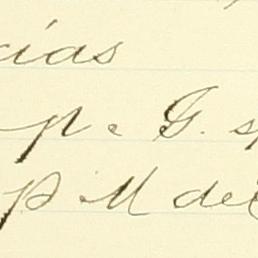 cias
p. G. sp
P. M de C